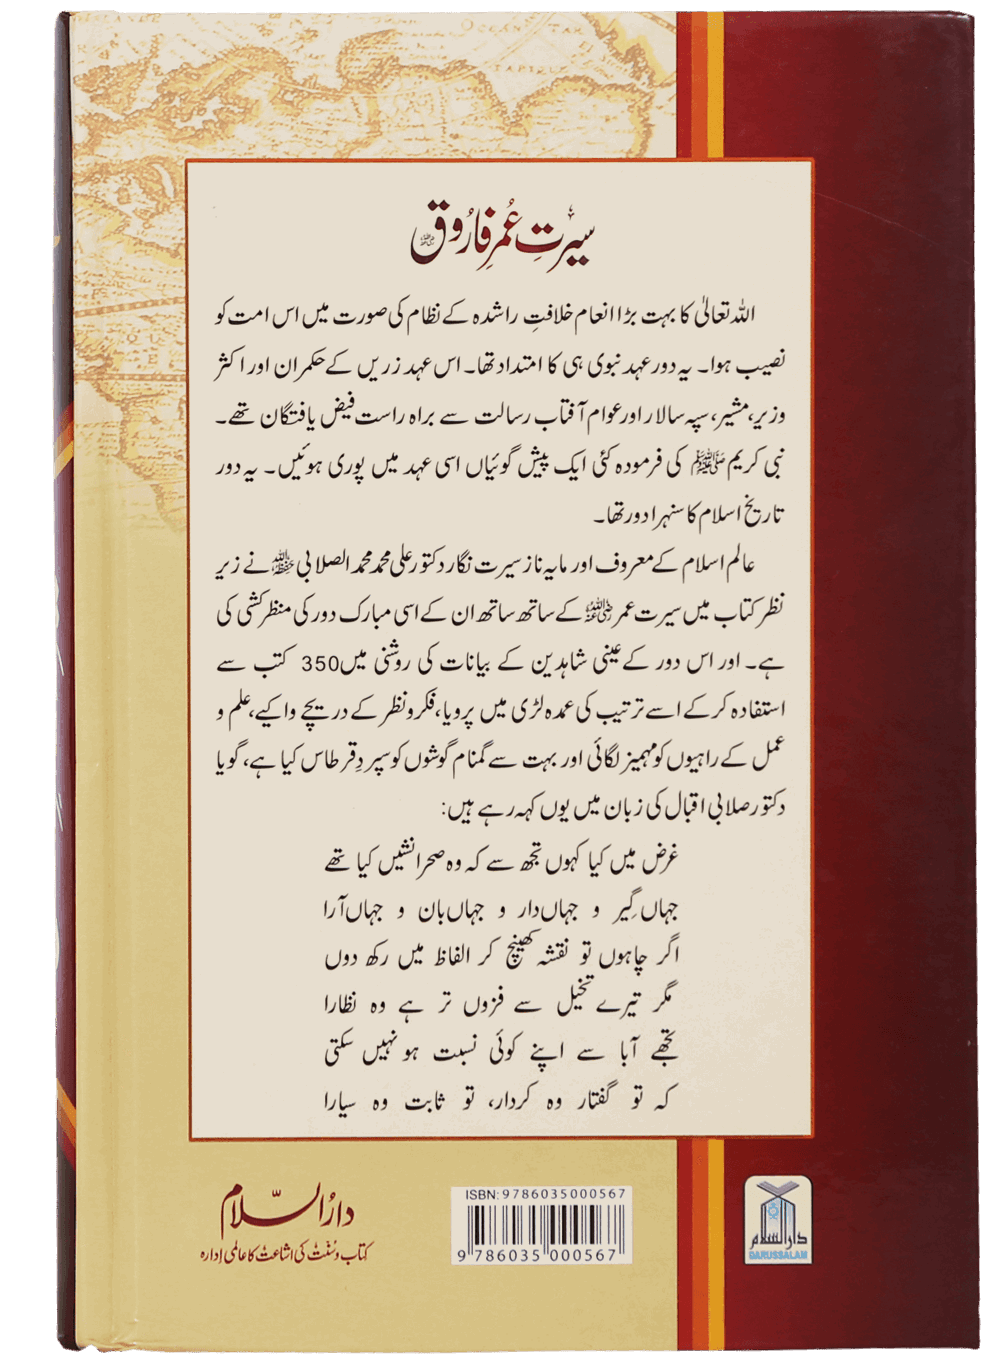 سیرتِ عُمر فاروق رضی اللہ عنہ
اللہ تعالیٰ کا بہت بڑا انعام خلافتِ راشدہ کے نظام کی صورت میں اس امت کو
نصیب ہوا۔ یہ دور عہد نبوی ہی کا امتداد تھا۔ اس عہد زریں کے حکمران اور اکثر
وزیر، مشیر، سپہ سالار اور عوام آفتاب رسالت سے براہ راست فیض یافتگان تھے۔
نبی کریم ﷺ کی فرمودہ کئی ایک پیش گوئیاں اسی عہد میں پوری ہوئیں۔ یہ دور
تاریخ اسلام کا سنہرا دور تھا۔
عالم اسلام کے معروف اور مایہ ناز سیرت نگار دکتور علی محمد محمد الصلابی حفظہ اللہ نے زیر
نظر کتاب میں سیرت عمر رضی اللہ عنہ کے ساتھ ساتھ ان کے اسی مبارک دور کی منظر کشی کی
ہے۔ اور اس دور کے عینی شاہدین کے بیانات کی روشنی میں 350 کتب سے
استفادہ کر کے اسے ترتیب کی عمدہ لڑی میں پرویا، فکر و نظر کے دریچے وا کیے، علم و
عمل کے راہیوں کو مہمیز لگائی اور بہت سے گمنام گوشوں کو سپردِ قرطاس کیا ہے، گویا
دکتور صلابی اقبال کی زبان میں یوں کہہ رہے ہیں:
غرض میں کیا کہوں تجھ سے کہ وہ صحرا نشیں کیا تھے
جہاں گِیر و جہاں دار و جہاں بان و جہاں آرا
اگر چاہوں تو نقشہ کھینچ کر الفاظ میں رکھ دوں
مگر تیرے تخیل سے فزوں تر ہے وہ نظارا
تجھے آبا سے اپنے کوئی نسبت ہو نہیں سکتی
کہ تو گفتار وہ کردار، تو ثابت وہ سیارا
دارُالسّلام
کتاب و سُنّت کی اشاعت کا عالمی اِدارہ
ISBN: 9786035000567
9 786035 000567
دارالسلام
DARUSSALAM